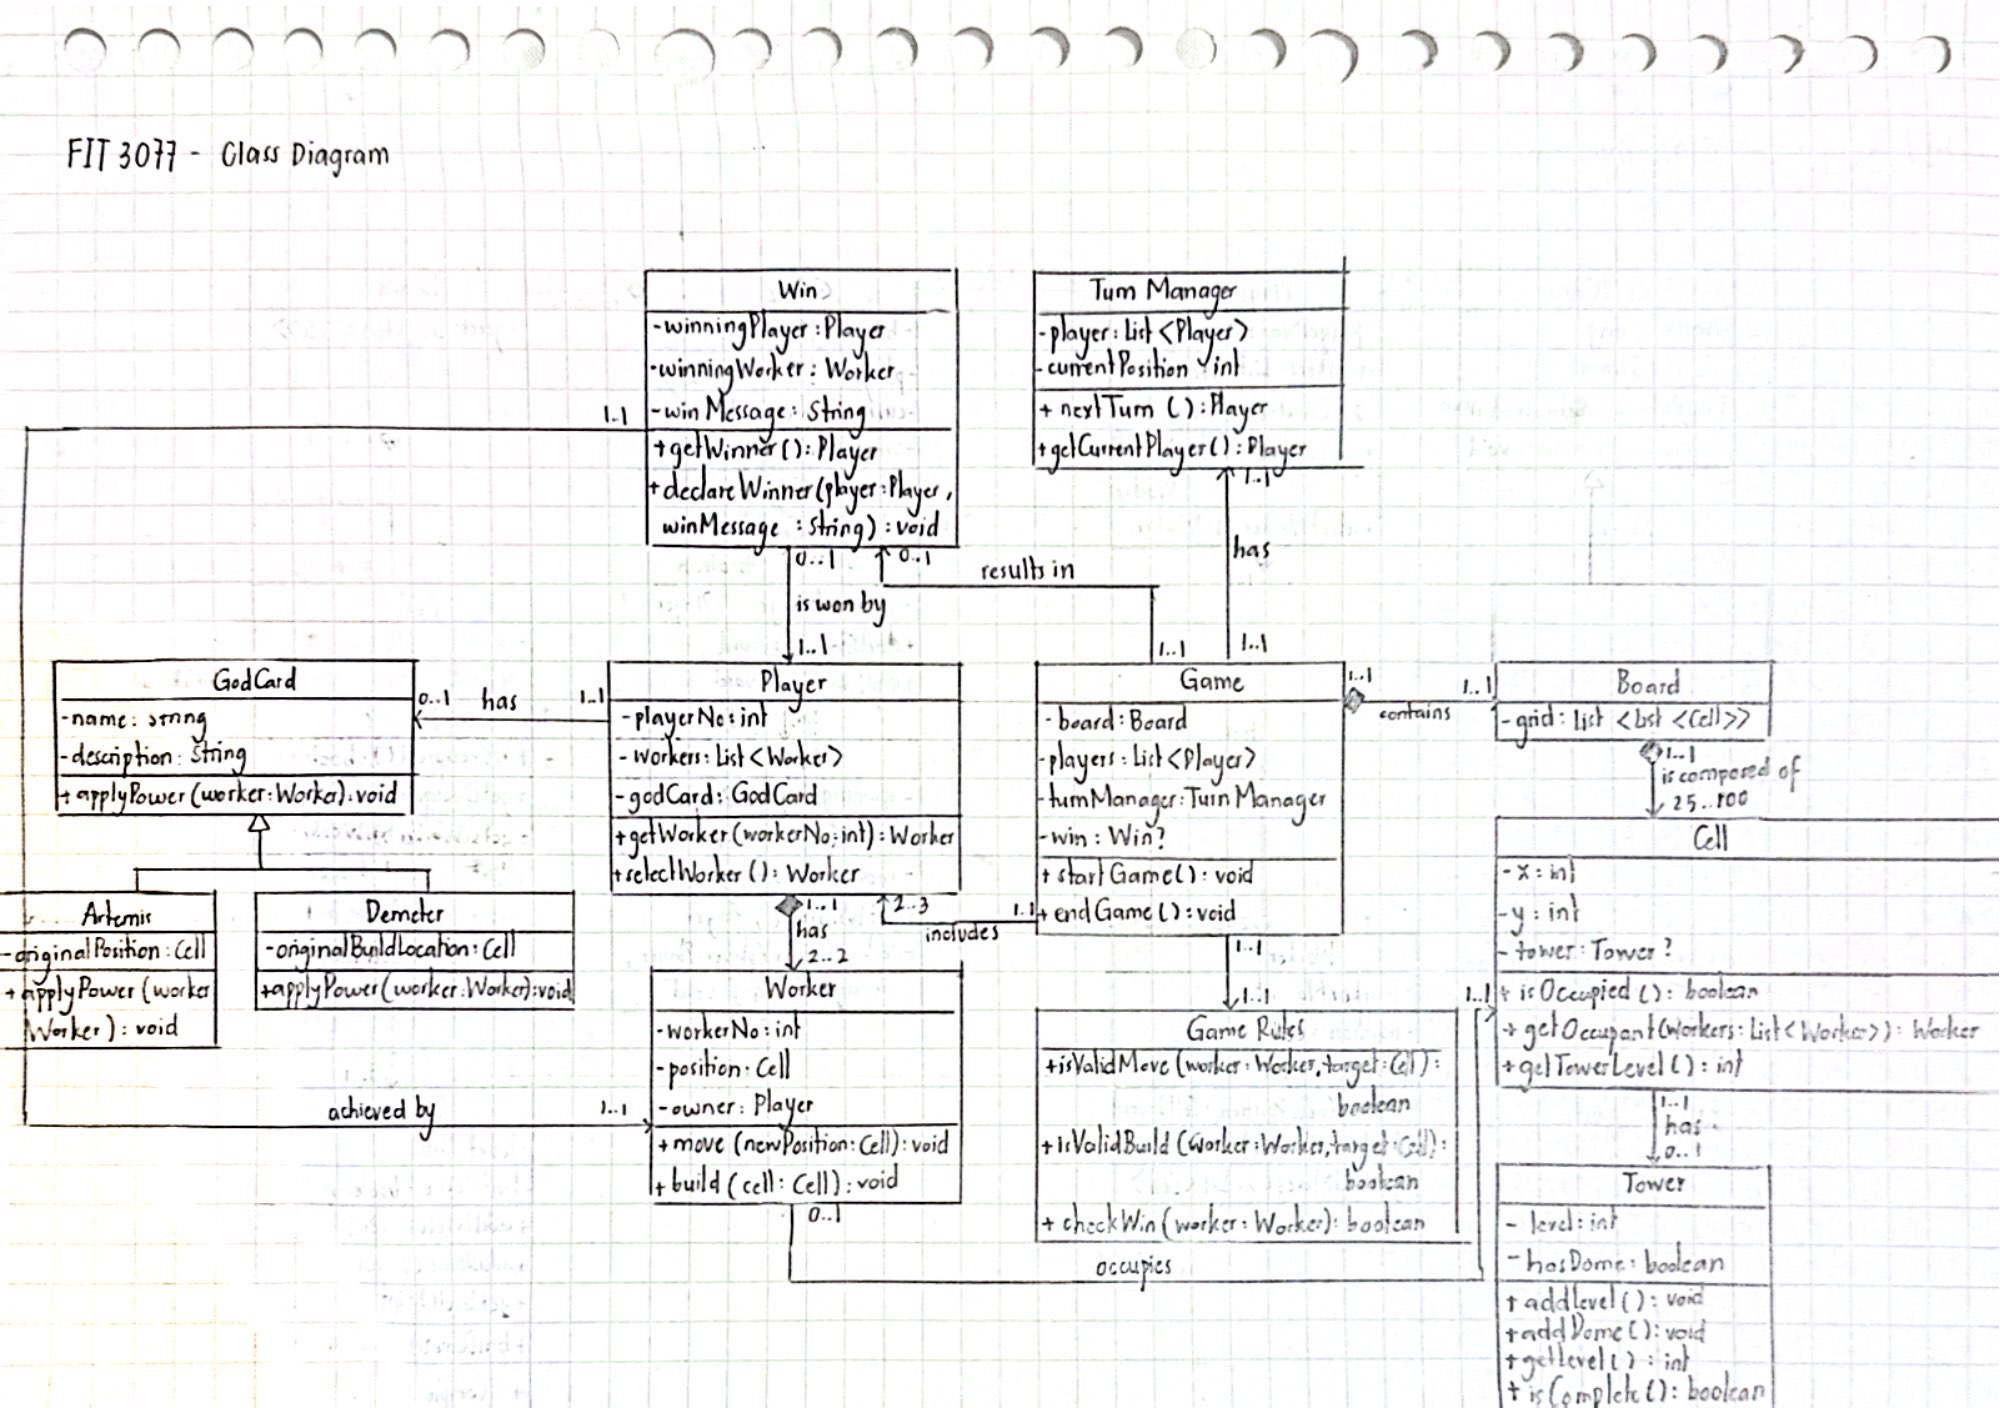 FIT 3077 - Class Diagram
Win
-winningPlayer : Player
-winningWorker : Worker
-winMessage : String
+getWinner() : Player
+declareWinner(player : Player,
winMessage : String) : void
Turn Manager
-player : List <Player>
-currentPosition int
+ nextTurn () : Player
+getCurrentPlayer() : Player
1..1
1..1
has
1..1
0..1
0..1
results in
1..1
is won by
1..1
GodCard
-name : String
-description : String
+applyPower (worker : Worker) : void
0..1
has
1..1
Player
-playerNo : int
-workers : List <Worker>
-godCard : GodCard
+getWorker (workerNo : int) : Worker
+selectWorker () : Worker
Game
-board : Board
-players : List <Player>
-turnManager : Turn Manager
-win : Win?
+ startGame() : void
+ endGame() : void
1..1
contains
1..1
Board
-grid : List <List <Cell>>
1..1
is composed of
25..100
Cell
-x : int
-y : int
-tower : Tower ?
+ isOccupied () : boolean
+ getOccupant (workers : List <Worker>) : Worker
+ getTowerLevel () : int
Artemis
-originalPosition : Cell
+ applyPower (worker
Worker) : void
Demeter
-originalBuildLocation : Cell
+applyPower (worker : Worker) : void
1..1
has
2..2
2..3
includes
1..1
Worker
-workerNo : int
-position : Cell
-owner : Player
+ move (newPosition : Cell) : void
+ build (cell : Cell) : void
achieved by
1..1
0..1
occupies
1..1
1..1
1..1
Game Rules
+isValidMove (worker : Worker, target : Cell) :
boolean
+isValidBuild (worker : Worker, target : Cell) :
boolean
+ checkWin (worker : Worker) : boolean
1..1
has
0..1
Tower
- level : int
- hasDome : boolean
+ addLevel () : void
+addDome () : void
+getLevel () : int
+ isComplete () : boolean